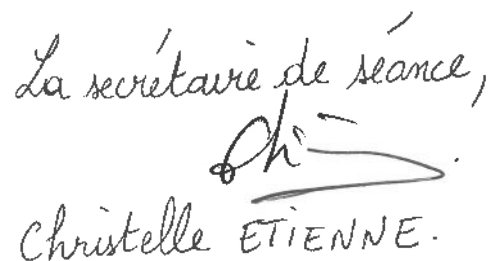 La secrétaire de séance,
Christelle ETIENNE.